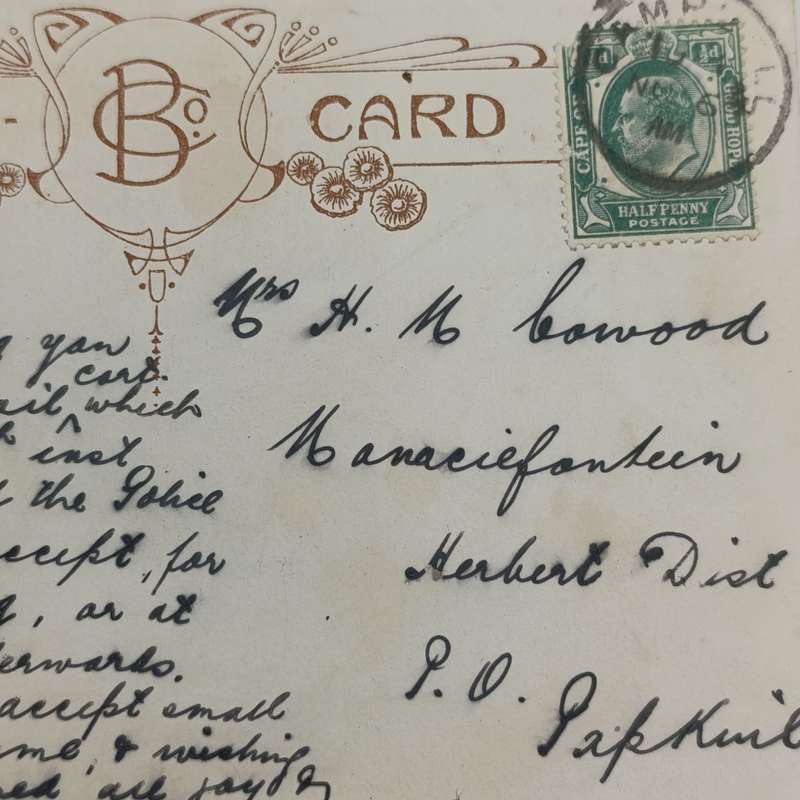 BCo. CARD
CAPE OF GOOD HOPE
½d ½d
HALFPENNY
POSTAGE
NO 6
AM
Mrs H. M Cowood
Manaciefontein
Herbert Dist
P. O. Papkuil
you
cart.
which
inst
the Police
accept, for
, or at
accept small
, & wishing
are joy &